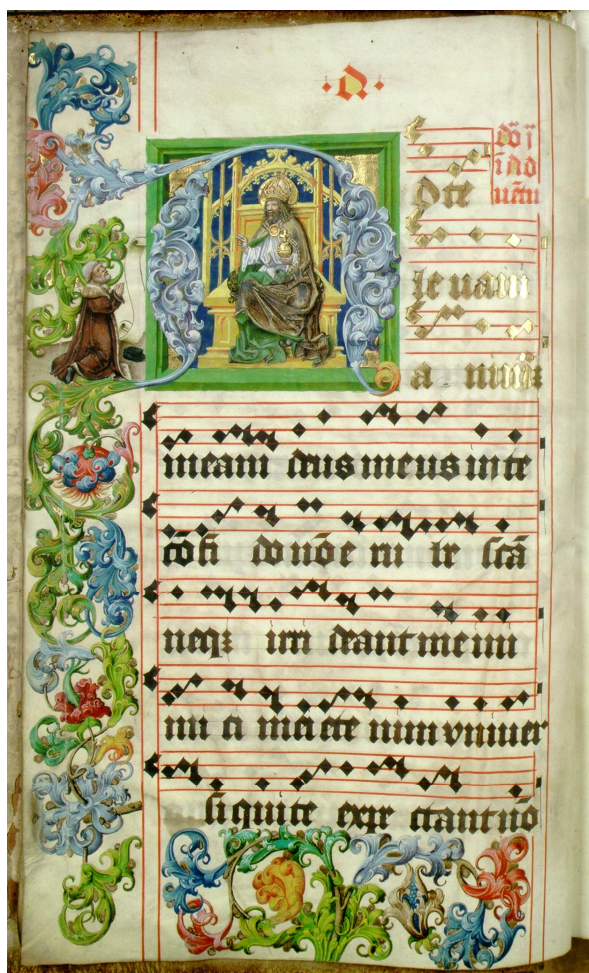 ·A·
A
d te
dō i
i ad
uētu
leuaui
a nimā
meam deus meus in te
cōfi do nō e ru be scā
neqꝫ irri deant me ini
mi ci mei ete nim vniuer
si qui te expe ctant nō